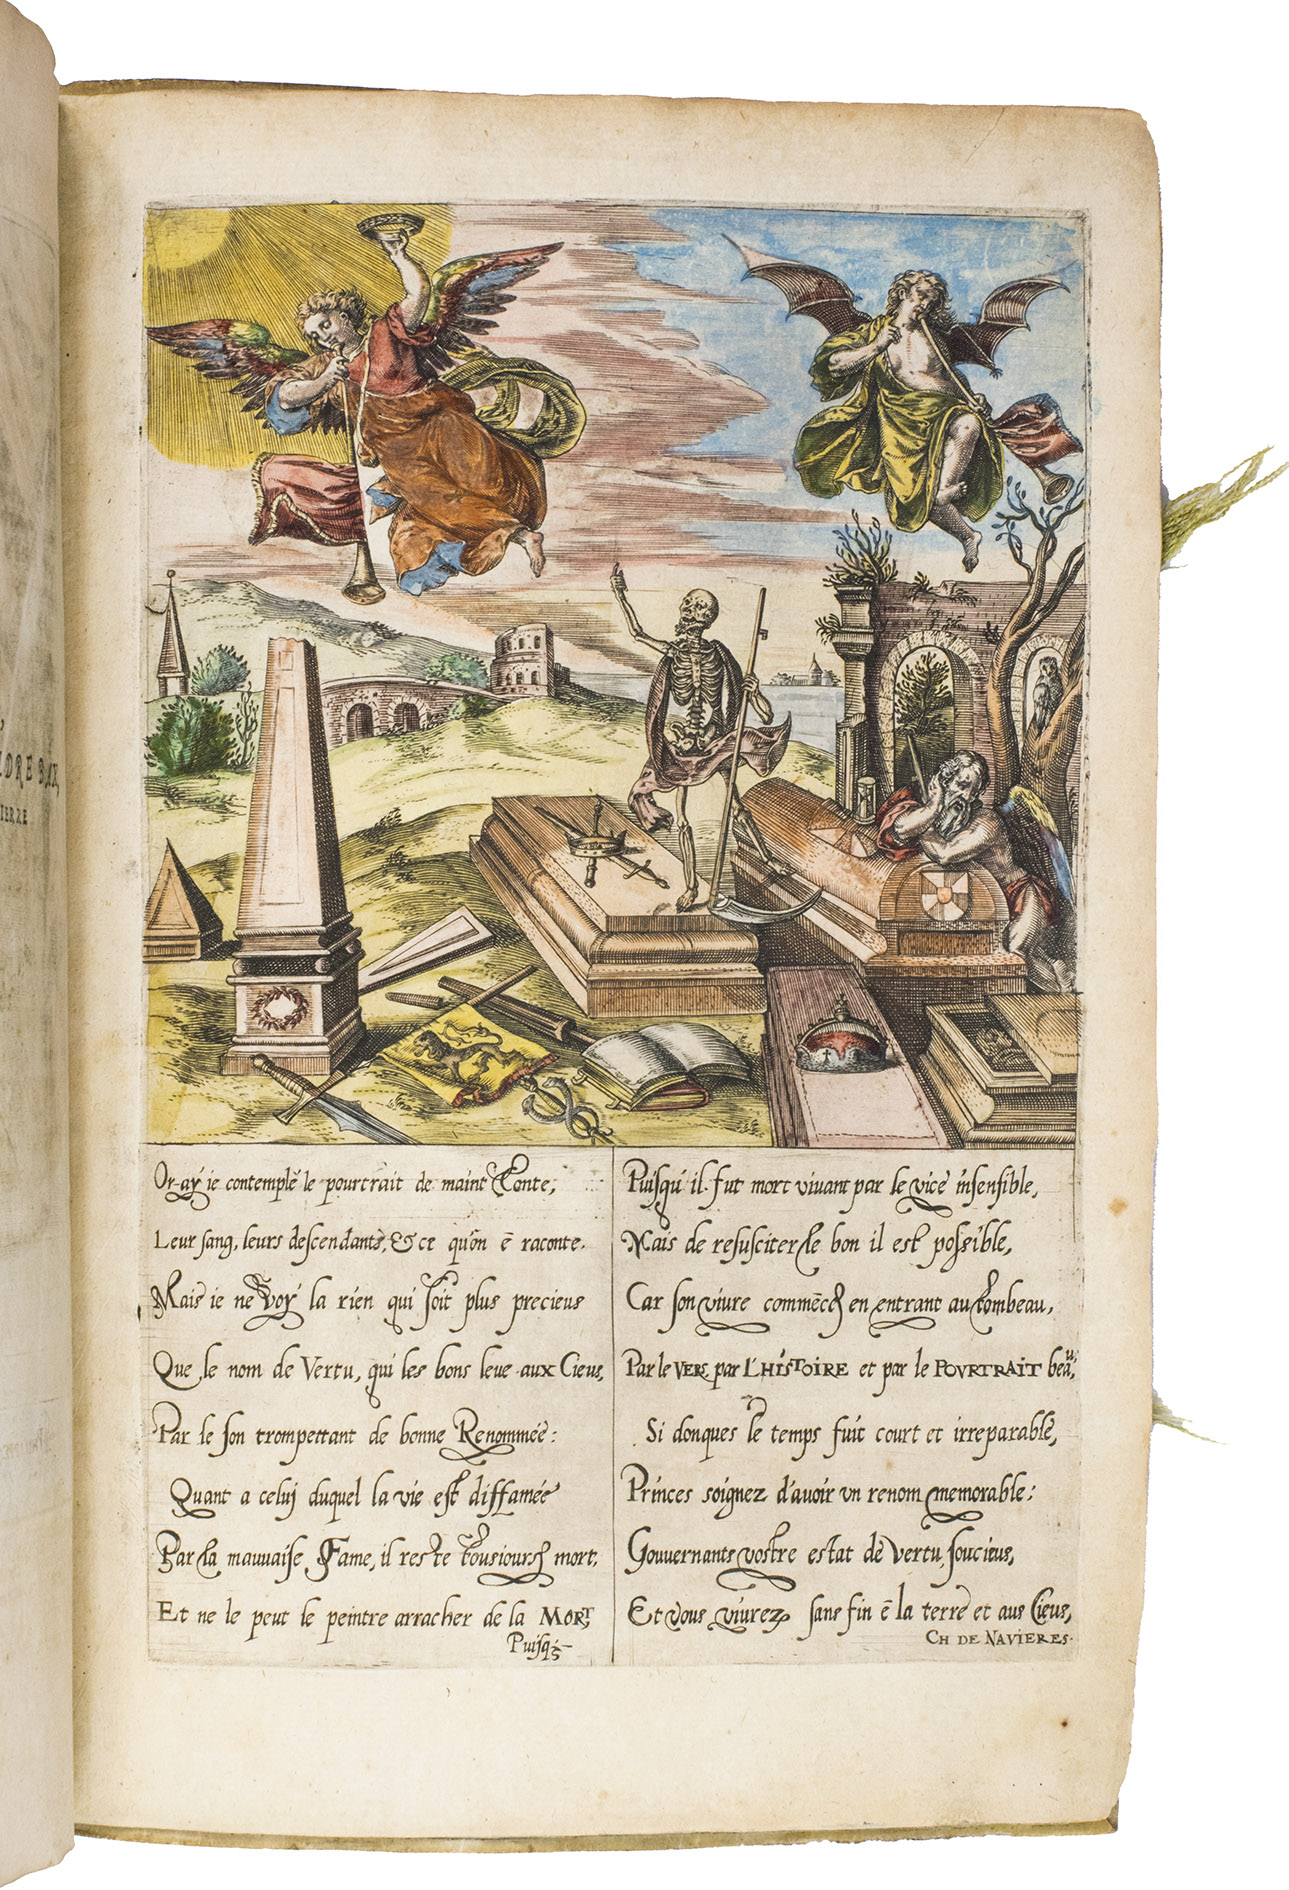 DRE BAX,
IERRE
Or-ay ie contemplé le pourtrait de maint Conte,
Leur sang, leurs descendants, & ce qu'on ē raconte.
Mais ie ne voy la rien qui soit plus precieus
Que le nom de Vertu, qui les bons leue aux Cieus,
Par le son trompettant de bonne Renommée:
Quant a celuj duquel la vie est diffamée
Par la mauuaise Fame, il reste tousiours mort,
Et ne le peut le peintre arracher de la MORT,
Puisq
Puisqu'il fut mort viuant par le vice insensible,
Mais de resusciter le bon il est possible,
Car son viure commēce en entrant au tombeau,
Par le VERS, par L'HISTOIRE et par le POVRTRAIT beau,
Si donques le temps fuit court et irreparable,
Princes soignez d'auoir vn renom memorable:
Gouuernants vostre estat de vertu soucieus,
Et vous viurez sans fin ē la terre et aus Cieus,
CH DE NAVIERES.